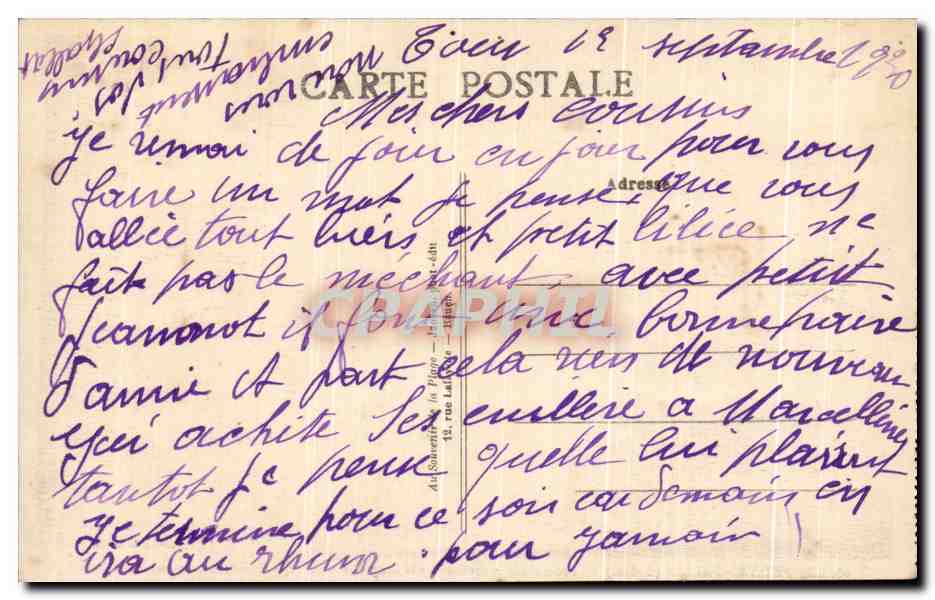 12 septembre 19
CARTE POSTALE
Mes chers cousins
je remai de jour en jour pour vous
faire un mot je pense que vous
Adresse
allée tout biens et petit lilice ne
fait pas le méchant avec petit
Jeannot il font une bonne paire
d'amie et part cela rien de nouveau
j'ai achité les cuillère a Marcelline
tantot je pense quelle lui plairont
je termine pour ce soir car demain on
ira au rhum pour
nous vous
embrassent
tout
Au Souvenir de la Plage
12, rue
CRAPHIL